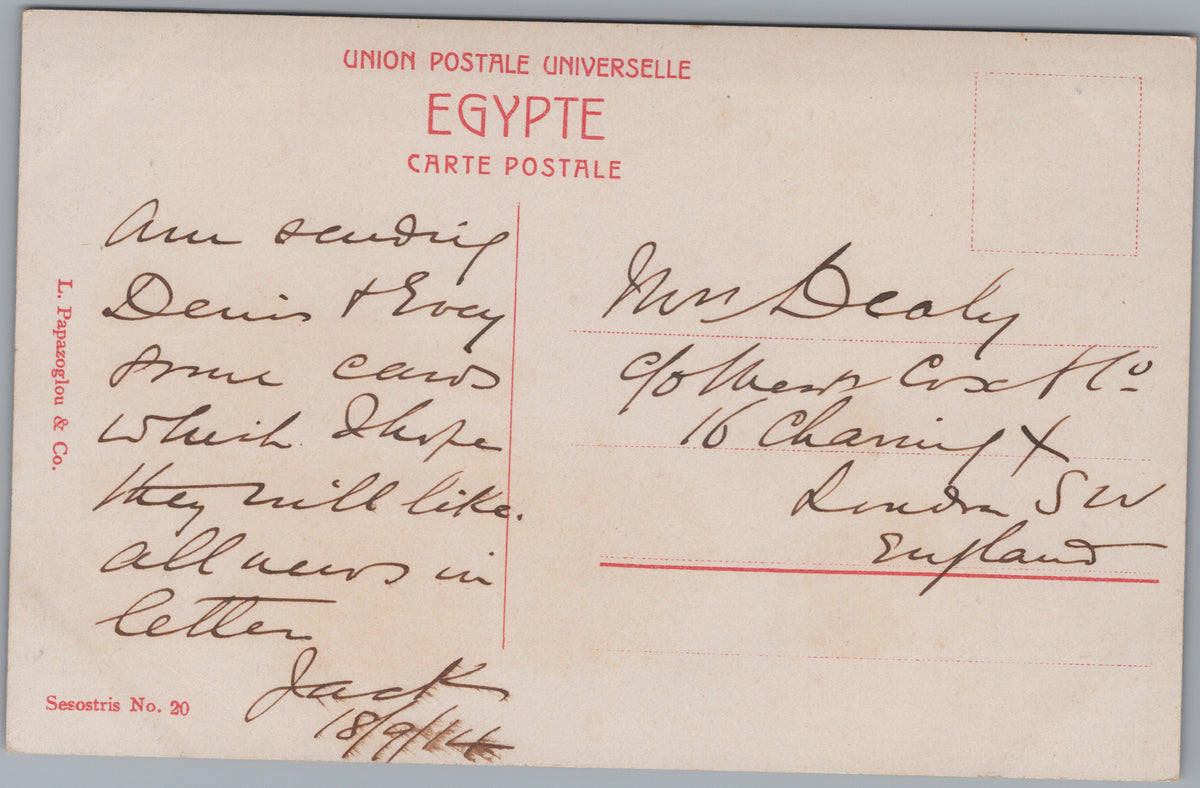 UNION POSTALE UNIVERSELLE
EGYPTE
CARTE POSTALE
Am sending
Denis & Evey
some cards
which I hope
they will like.
All news in
letter
Jack
18/9/14
Mrs Dealy
c/o Messrs Cox & Co
16 Charing X
London SW
England
L. Papazoglou & Co.
Sesostris No. 20